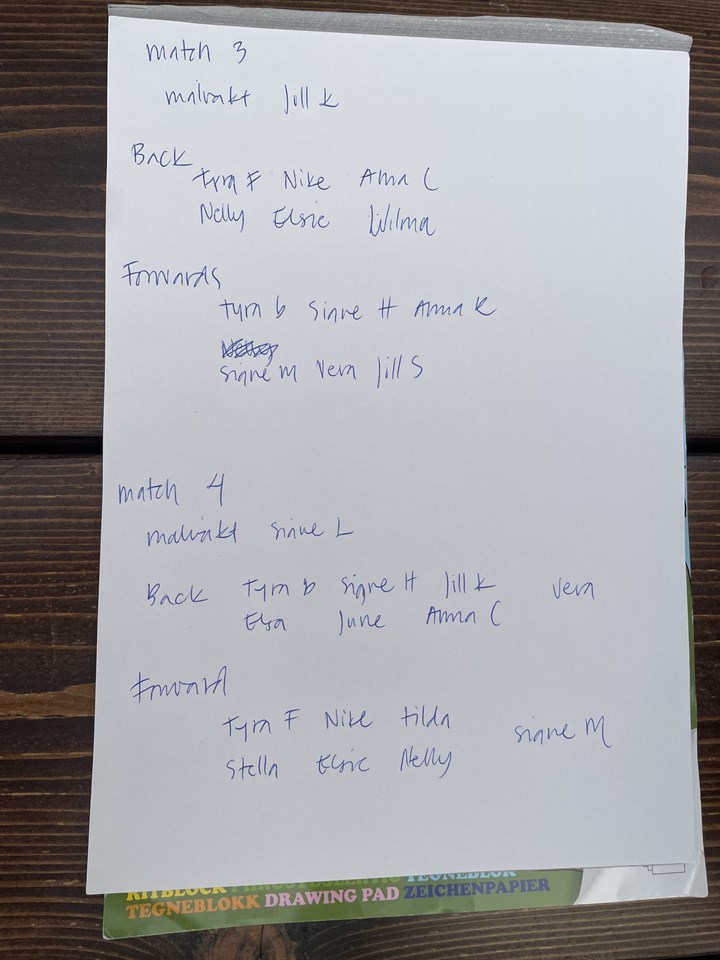 match 3
målvakt Jill K
Back
Tyra F Nike Anna C
Nelly Elsie Wilma
Forwards
Tyra b Signe H Anna K
Signe M Vera Jill S
match 4
målvakt Signe L
Back Tyra b Signe H Jill K Vera
Elsa June Anna C
Forward
Tyra F Nike Tilda
Signe M
Stella Elsie Nelly
RITBLOCK
TEGNEBLOK
TEGNEBLOKK DRAWING PAD ZEICHENPAPIER